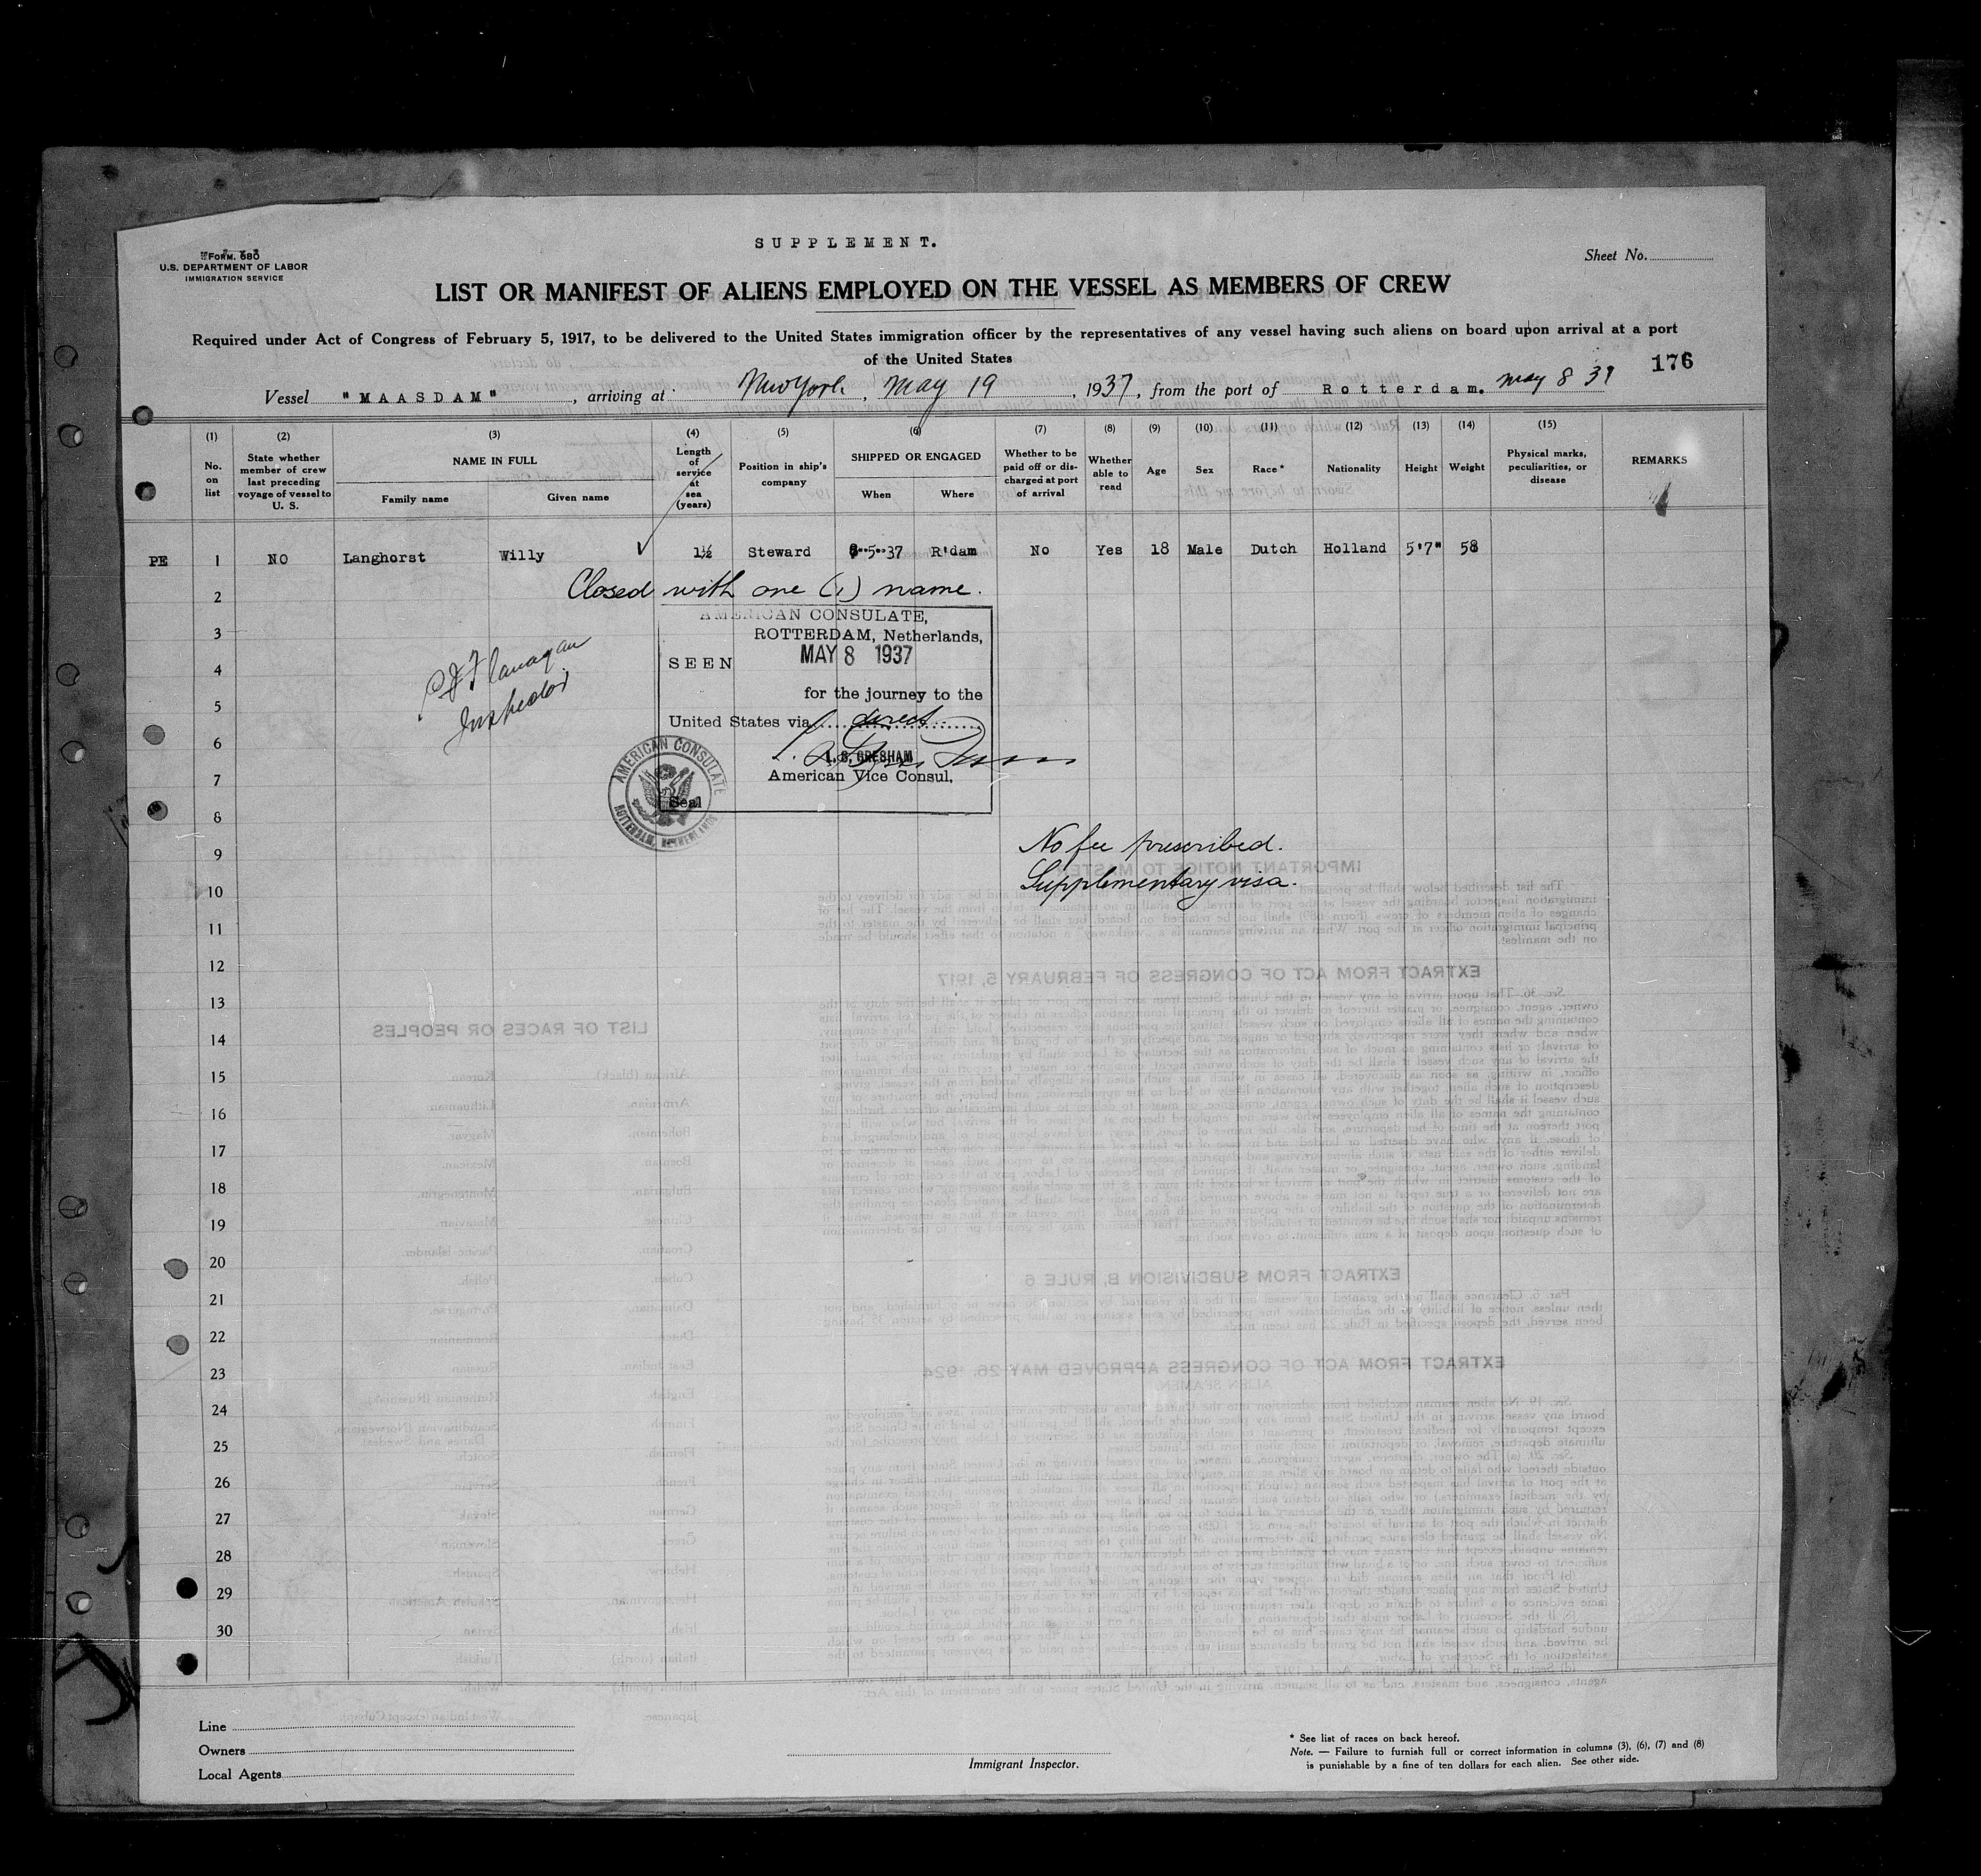 SUPPLEMENT.
FORM. 680
U.S. DEPARTMENT OF LABOR
IMMIGRATION SERVICE
Sheet No.
LIST OR MANIFEST OF ALIENS EMPLOYED ON THE VESSEL AS MEMBERS OF CREW
Required under Act of Congress of February 5, 1917, to be delivered to the United States immigration officer by the representatives of any vessel having such aliens on board upon arrival at a port
of the United States
176
Vessel "MAASDAM", arriving at New York, May 19, 1937, from the port of Rotterdam. May 8 37
(1) No. on list
(2) State whether member of crew last preceding voyage of vessel to U. S.
(3) NAME IN FULL Family name Given name
(4) Length of service at sea (years)
(5) Position in ship's company
(6) SHIPPED OR ENGAGED When Where
(7) Whether to be paid off or discharged at port of arrival
(8) Whether able to read
(9) Age
(10) Sex
(11) Race*
(12) Nationality
(13) Height
(14) Weight
(15) Physical marks, peculiarities, or disease
REMARKS
PE 1 NO Langhorst Willy 1½ Steward 8--5--37 R'dam No Yes 18 Male Dutch Holland 5'7" 58
Closed with one (1) name.
2
3
4
5
6
7
8
9
10
11
12
13
14
15
16
17
18
19
20
21
22
23
24
25
26
27
28
29
30
AMERICAN CONSULATE,
ROTTERDAM, Netherlands,
SEEN MAY 8 1937
for the journey to the
United States via direct
GRESHAM
American Vice Consul.
Seal
AMERICAN CONSULATE
ROTTERDAM, NETHERLANDS
Flanagan
Inspector
No fee prescribed.
Supplementary visa.
Line
Owners
Local Agents
Immigrant Inspector.
* See list of races on back hereof.
Note. — Failure to furnish full or correct information in columns (3), (6), (7) and (8)
is punishable by a fine of ten dollars for each alien. See other side.